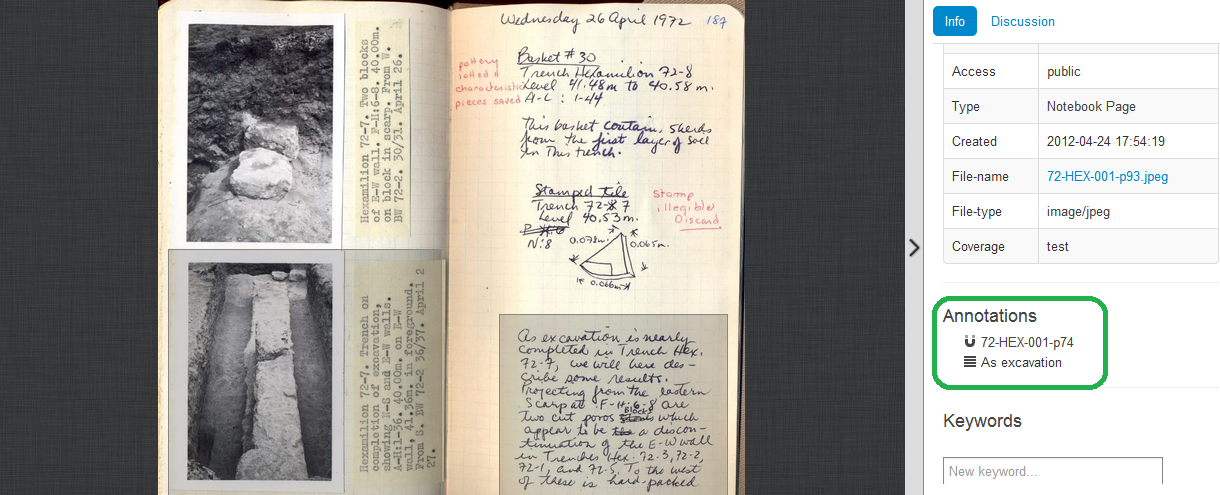 Hexamilion 72-7. Two blocks
of E-W wall. F-H:6-8. 40.00m.
on block in scarp. From W.
BW 72-2. 30/31. April 26.
Hexamilion 72-7. Trench on
completion of excavation,
showing N-S and E-W walls.
A-H:1-36. 40.00m. on E-W
wall, 41.36m. in foreground.
From S. BW 72-2 36/37. April 2
27.
Wednesday 26 April 1972 187
Basket # 30
Trench Hexamilion 72-8
Level 41.48m to 40.58 m.
A-C : 1-44
pottery
lotted &
characteristic
pieces saved
This basket contains sherds
from the first layer of soil
in this trench.
Stamped tile
Trench 72-8 7
Level 40.53m.
N:8
Stamp
illegible
Discard
0.078m.
0.065m.
0.066m
As excavation is nearly
completed in Trench Hex.
72-7, we will here des-
cribe some results.
Projecting from the eastern
Scarp at F-H:6-8 are
two cut poros Blocks which
appear to be the a discon-
tinuation of the E-W wall
in Trenches Hex. 72-3, 72-2,
72-1, and 72-5. To the west
of these is hard-packed
Info
Discussion
Access public
Type Notebook Page
Created 2012-04-24 17:54:19
File-name 72-HEX-001-p93.jpeg
File-type image/jpeg
Coverage test
Annotations
72-HEX-001-p74
As excavation
Keywords
New keyword...